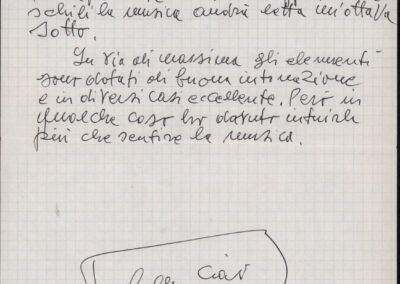 schili la musica andrà letta un'ottava
sotto.
In via di massima gli elementi
sono dotati di buona intonazione
e in diversi casi eccellente. Però in
qualche caso ho dovuto intuirla
più che sentire la musica.